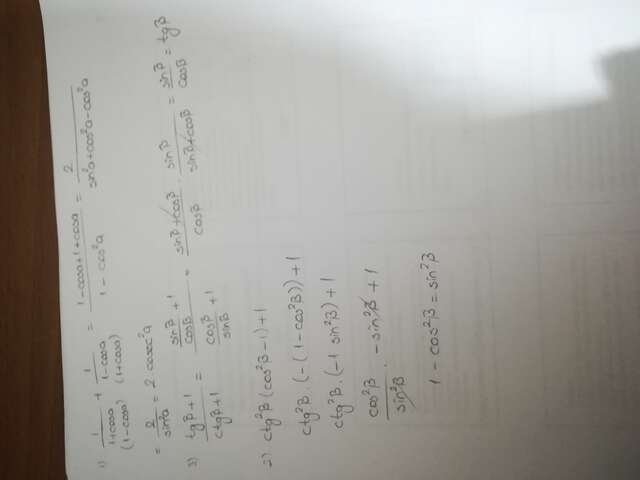 1) 1/(1+cosa) + 1/(1-cosa) = (1-cosa+1+cosa)/(1-cos²a) = 2/(sin²a+cos²a-cos²a)
(1-cosa) (1+cosa)
= 2/sin²a = 2 cosec²a
3) (tgβ+1)/(ctgβ+1) = (sinβ/cosβ + 1)/(cosβ/sinβ + 1) = (sinβ+cosβ)/cosβ · sinβ/(sinβ+cosβ) = sinβ/cosβ = tgβ
2) ctg²β(cos²β-1)+1
ctg²β·(-(1-cos²β))+1
ctg²β·(-1 sin²β)+1
cos²β/sin²β · -sin²β + 1
1-cos²β = sin²β